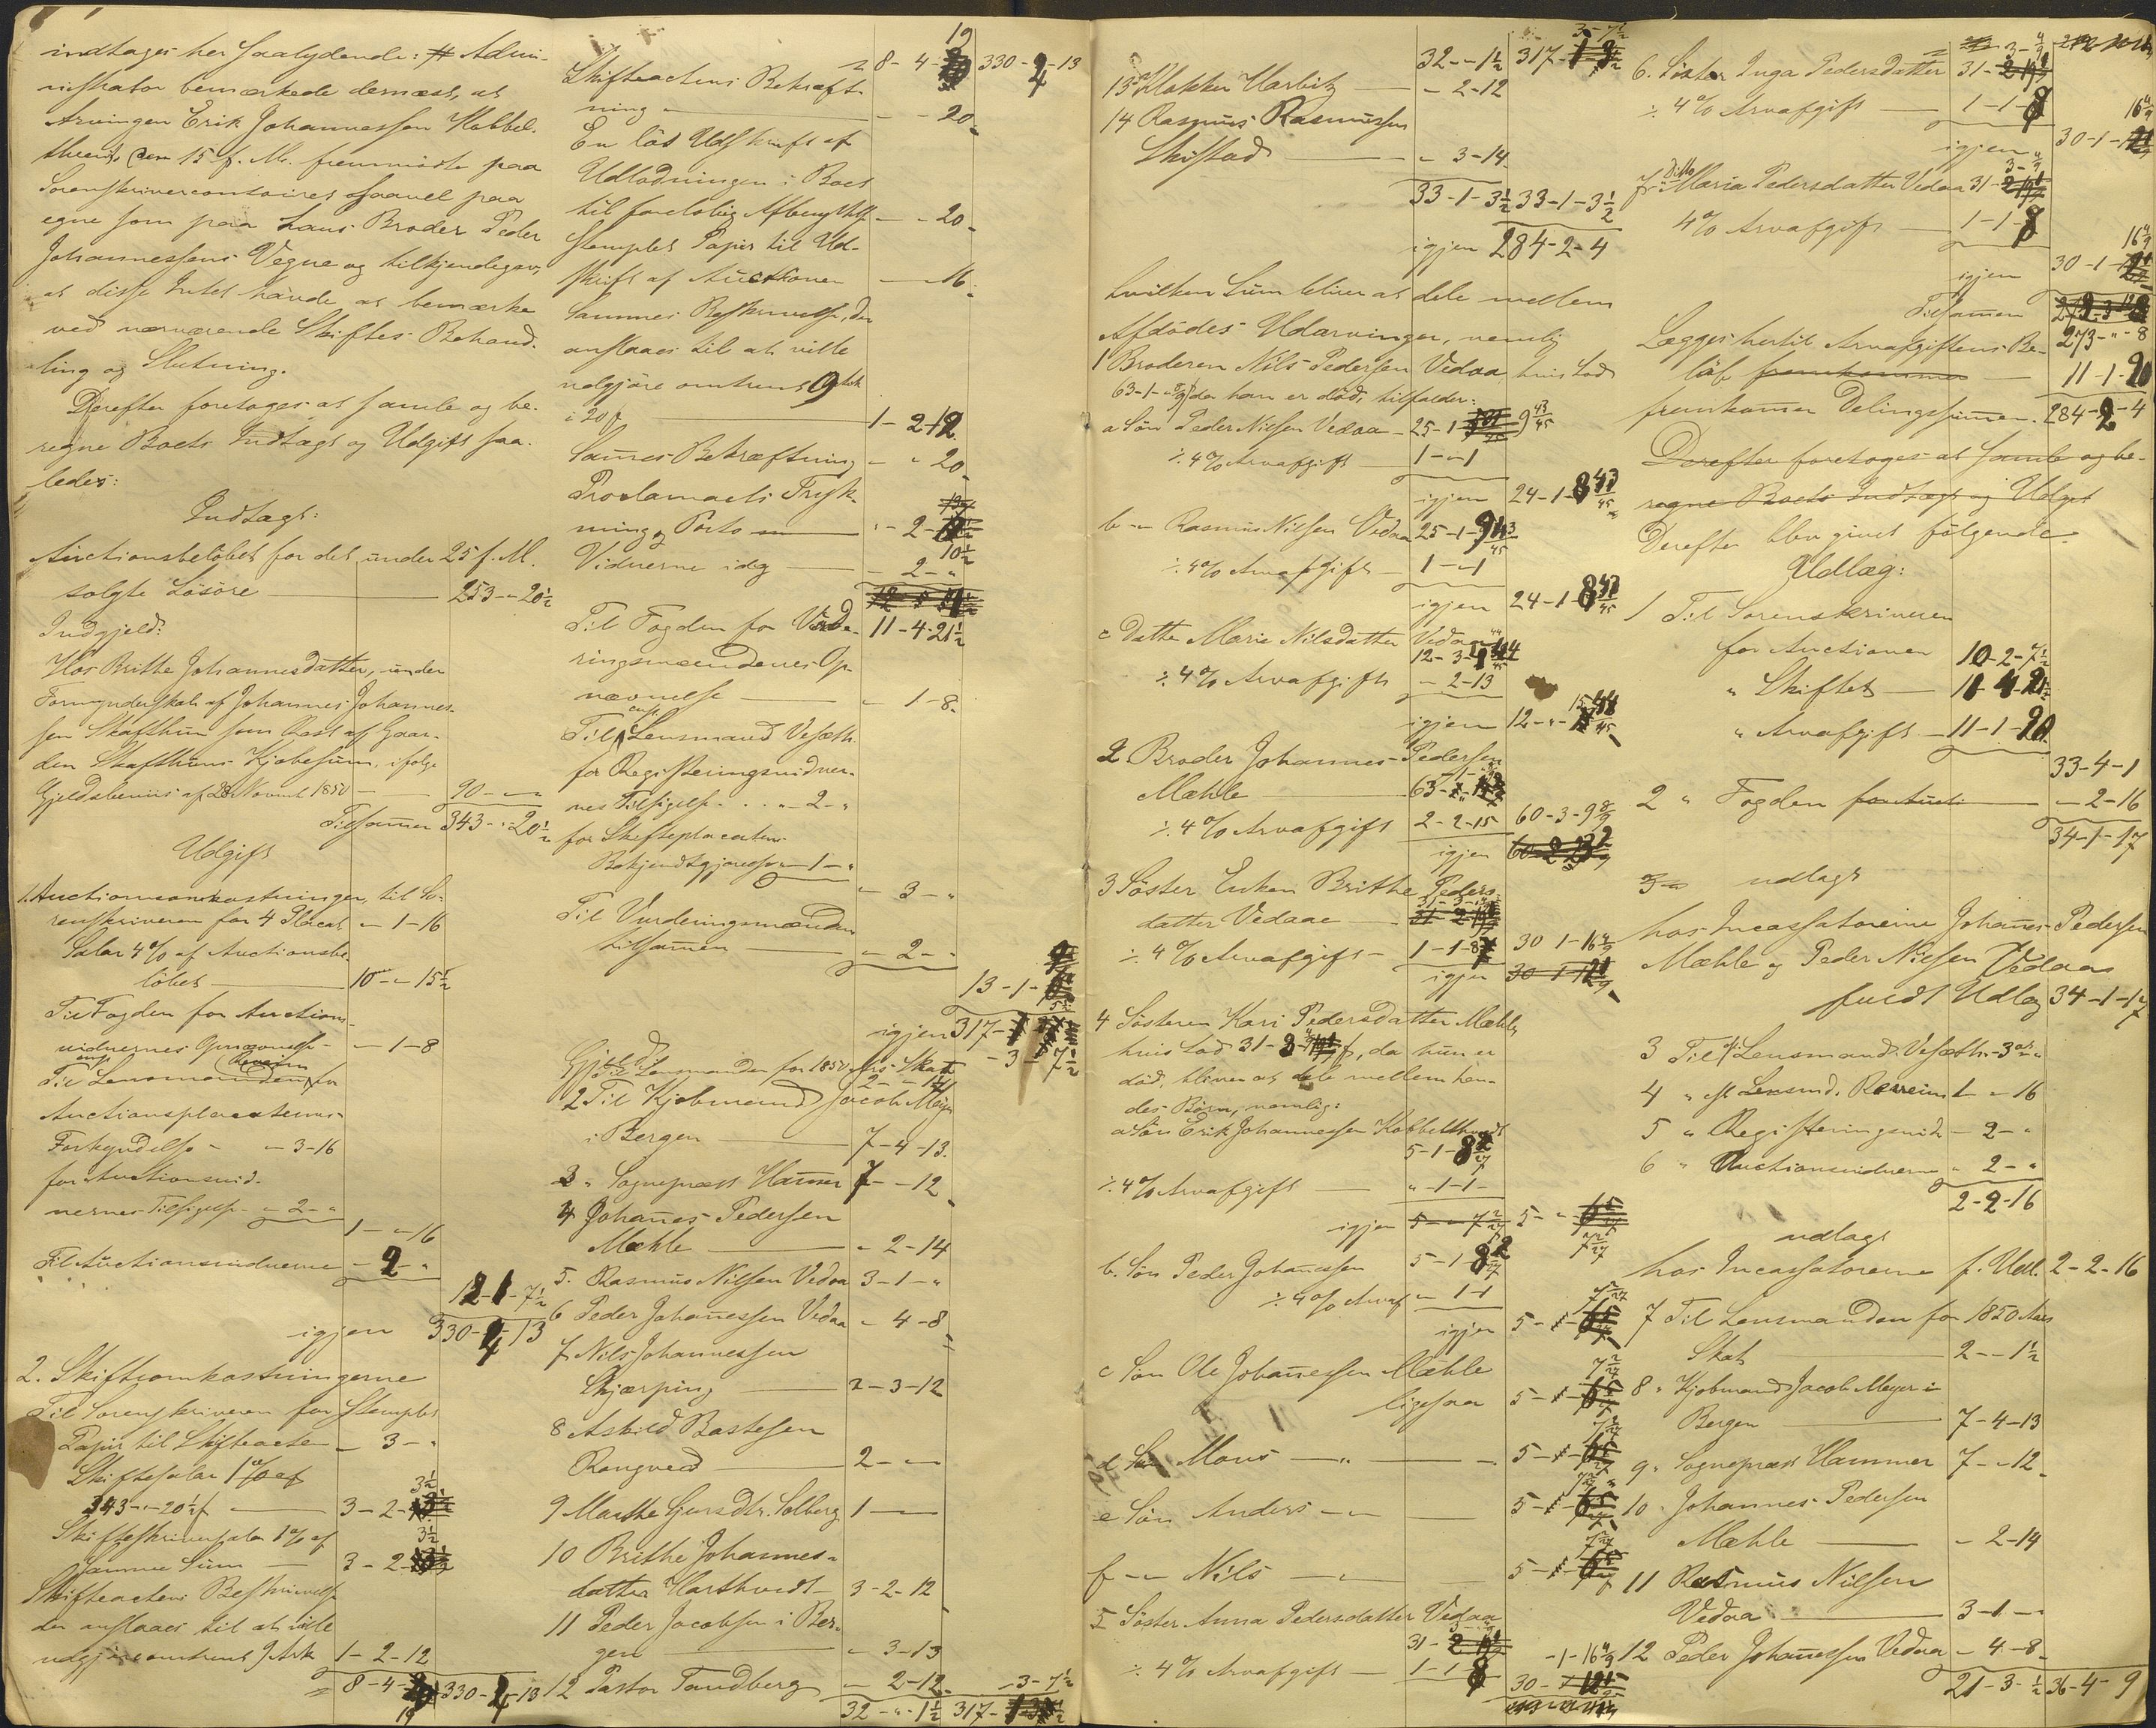 indtages her saalydende: # Admi-
nistrator bemærkede dernæst, at
Arvingen Erik Johannessen Kobbel-
thvedt den 15 f. M. fremmødte paa
Sorenskrivercontoiret saavel paa
egne som paa hans Broder Peder
Johannessens Vegne og tilkjendegav,
at disse Intet havde at bemærke
ved nærværende Skiftes Behand-
ling og Slutning.
Derefter foretoges at samle og be-
regne Boets Indtægt og Udgift saa-
ledes:
Indtægt:
Auctionsbeløbet for det under 25 f. M.
solgte Løsøre 253 - " 20½
Indgjeld:
Hos Brithe Johannesdatter, under
Formynderskab af Johannes Johannes-
sen Skafthun som Rest af Gaar-
den Skafthuns Kjøbesum, ifølge
Gjeldsbeviis af 28 Novemb 1850 90 - " - "
Tilsammen 343 - " - 20½
Udgift
1. Auctionsomkostninger, til So-
renskriveren for 4 Placat " - 1-16
Salar 4% af Auctionsbe-
løbet 10 - " 15½
Til Fogden for Auctions-
vidnernes Opnævnelse " - 1-8
Til const Lensmanden Røveim for
Auctionsplacaternes
Forkyndelse - " - 3-16
for Auctionsvid-
nernes Tilsigelse - " - 2 - "
1 - " - 16
Til Auctionsvidnerne - 2 - "
12-1-7½
igjen 330-4-13
2. Skifteomkostningerne
Til Sorenskriveren for Stemplet
Papir til Skifteacten " - 3 - "
Skiftesalar 1% af
343 - " - 20½ f 3-2-3½
Skifteskriversalar 1% af
samme Sum 3-2-3½
Skifteactens Beskrivelse
der anslaaes til at ville
udgjøre omtrent 9 Ark 1-2-12
8-4-19 330-4-13
8-4-19 330-4-13
Skifteactens Bekræft-
ning " - " 20
En løs Udskrift af
Udlodningen i Boet
til foreløbig Afbenyttelse " - " 20
Stemplet Papir til Ud-
skrift af Auctionen " - 16
Sammes Beskrivelse, der
anslaaes til at ville
udgjøre omtrent 9 Ark
i 20 f 1-2-12
Sammes Bekræftning " - " 20
Proclamaets Tryk-
ning og Porto " - 2-10½
Vidnerne i dag " - 2 - "
11-4-21½
Til Fogden for Vurde-
ringsmændenes Op-
nævnelse " - 1-8
Til const Lensmand Vesæth
for Registeringsvidner-
nes Tilsigelse . . " - 2 - "
for Skifteplacaten
Bekjendtgjørelse " - 1 - "
" - 3 - "
Til Vurderingsmænden
tilsammen " - 2 - "
13-1-
igjen 317- - 3-7½
Gjeld
1 Til Lensmanden for 1850 Aars Skat
2 - " - 1½
2 Til Kjøbmand Jacob Meyer
i Bergen 7-4-13
3 " Sognepræst Hammer 7 - " - 12
4 Johannes Pedersen
Mæhle " - 2-14
5. Rasmus Nilsen Vedaa 3-1 - "
6 Peder Johannessen Vedaa " - 4-8
7 Nils Johannessen
Skjærping 2-3-12
8 Askild Bastesen
Rongved 2 - " -
9 Marthe Gjersdtr. Solberg 1 - " -
10 Brithe Johannes-
datter Harthvedt 3-2-12
11 Peder Jacobsen i Ber-
gen " - 3-13
12 Pastor Tandberg " - 2-12
32 - " - 1½ 317-3-7½
32 - " - 1½ 317-3-7½
13 Klokker Harbitz " - 2-12
14 Rasmus Rasmussen
Skistad " - 3-14
33-1-3½ 33-1-3½
igjen 284-2-4
hvilken Sum bliver at dele mellem
Afdødes Udarvinger, nemlig
1 Broderen Nils Pedersen Vedaa, hvis Lod
63-1- da han er død, tilfalder:
a Søn Peder Nilsen Vedaa - 25-1-9 43/45
÷ 4% Arvafgift 1 - " - 1
igjen 24-1-8 43/45
b - " Rasmus Nilsen Vedaa 25-1-9 43/45
÷ 4% Arvafgift 1 - " - 1
igjen 24-1-8 43/45
c Datter Marie Nilsdatter Vedaa
12-3-4 44/45
÷ 4% Arvafgift " - 2-13
igjen 12 - " - 15 44/45
2. Broder Johannes Pedersen
Mæhle 63-1-
÷ 4% Arvafgift 2-2-15 60-3-9 8/9
igjen
3 Søster Enken Brithe Peders-
datter Vedaae
÷ 4% Arvafgift 1-1-8 30 1-16 4/9
igjen
4 Søsteren Kari Pedersdatter Mæhle
hvis Lod 31-3- f, da hun er
død, bliver at dele mellem hen-
des Børn, nemlig:
a Søn Erik Johannessen Kobbelthvedt
5-1-8 2/27
÷ 4% Arvafgift " - 1-1
igjen 5 - " - 7 2/27
b. Søn Peder Johannessen 5-1-8 2/27
÷ 4% Arvaf " - 1-1
igjen 5 - " - 7 2/27
c Søn Ole Johannessen Mæhle
ligesaa 5 - " - 7 2/27
d Søn Mons - " - 5 - " - 7 2/27
e Søn Anders - " - 5 - " - 7 2/27
f - " Nils - " - 5 - " - 7 2/27
5 Søster Anna Pedersdatter Vedaa
31-3-
÷ 4% Arvafgift 1-1-8 30-1-16 4/9
6. Søster Inga Pedersdatter 31-3-4/9
÷ 4% Arvafgift 1-1-8
igjen 30-1-16 4/9
7 Ditto Maria Pedersdatter Vedaa 31-3-4/9
4% Arvafgift 1-1-8
igjen 30-1-16 4/9
Tilsammen
273 - " - 8
Lægges hertil Arvafgiftens Be-
løb fremkommer 11-1-20
fremkommer Delingssummen. 284-2-4
Derefter foretoges at samle og be-
regne Boets Indtægt og Udgift
Derefter blev givet følgende
Udlæg:
1 Til Sorenskriveren
for Auctionen 10-2-7½
" Skiftet 11-4-21½
" Arvafgift 11-1-20
33-4-1
2 " Fogden for Aucti " - 2-16
34-1-17
3 udlagt
hos Incassatorerne Johannes Pedersen
Mæhle og Peder Nilsen Vedaas
fuldt Udlæg 34-1-17
3 Til const Lensmand Vesæth - 3 ort "
4 " cst Lensmd. Røveim 1 - " 16
5 " Registeringsvid - 2 - "
6 " Auctionsvidnerne " 2 - "
2-2-16
udlagt
hos Incassatorerne f. Udl. 2-2-16
7 Til Lensmanden for 1850 Aars
Skat 2 - " - 1½
8 " Kjøbmand Jacob Meyer i
Bergen 7-4-13
9 " Sognepræst Hammer 7 - " - 12
10 " Johannes Pedersen
Mæhle " - 2-14
11 Rasmus Nilsen
Vedaa 3-1 - "
12 Peder Johannessen Vedaa " - 4-8
21-3-½ 36-4-9